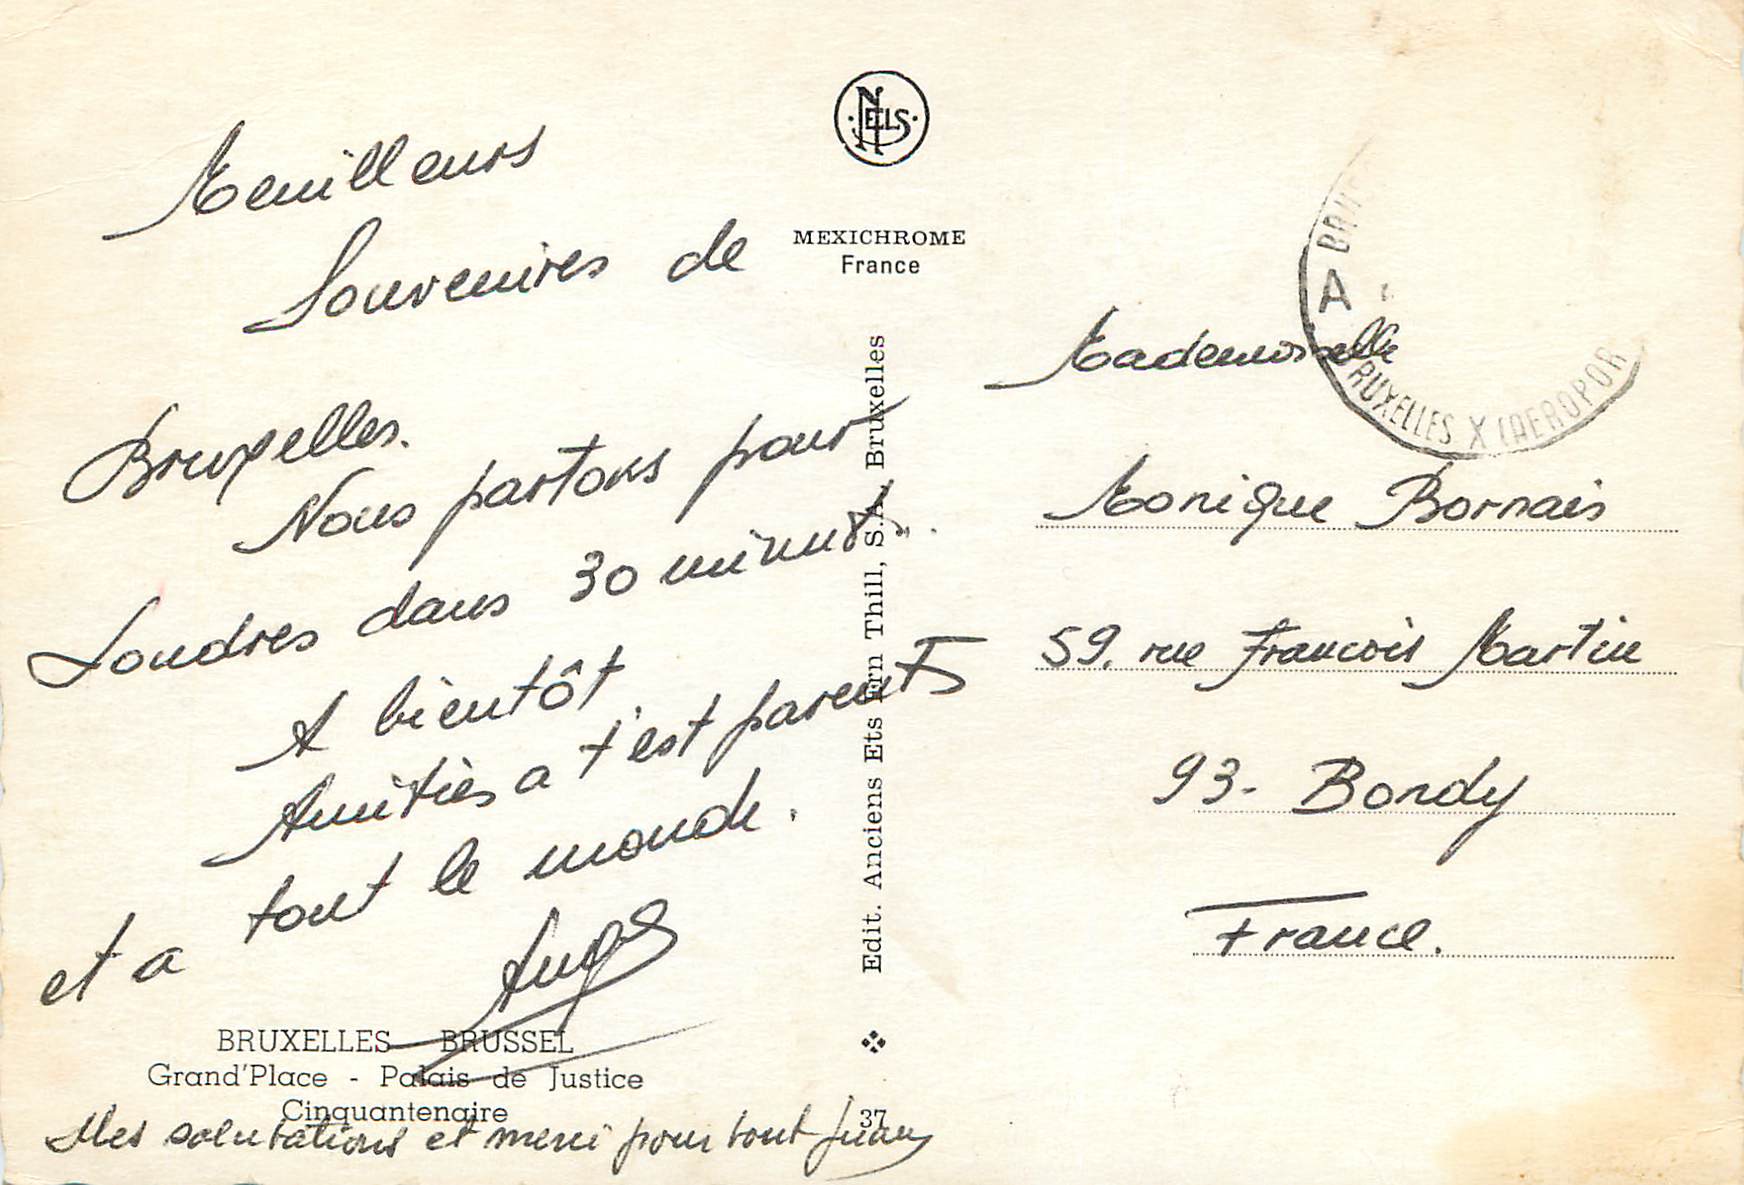 Meuilleurs
Souvenires de
Bruxelles.
Nous partons pour
Londres dans 30 minuts.
A bientôt
Amitiés a t'est parents
et a tout le monde.
BRUXELLES - BRUSSEL
Grand'Place - Palais de Justice
Cinquantenaire
Mes salutations et merci pour tout Juan
NELS
MEXICHROME
France
Edit. Anciens Ets Ern Thill, S.A. Bruxelles
37
A
BRUXELLES X (AEROPOR
Mademoiselle
Monique Bornais
59. rue Francois Martin
93- Bondy
France.